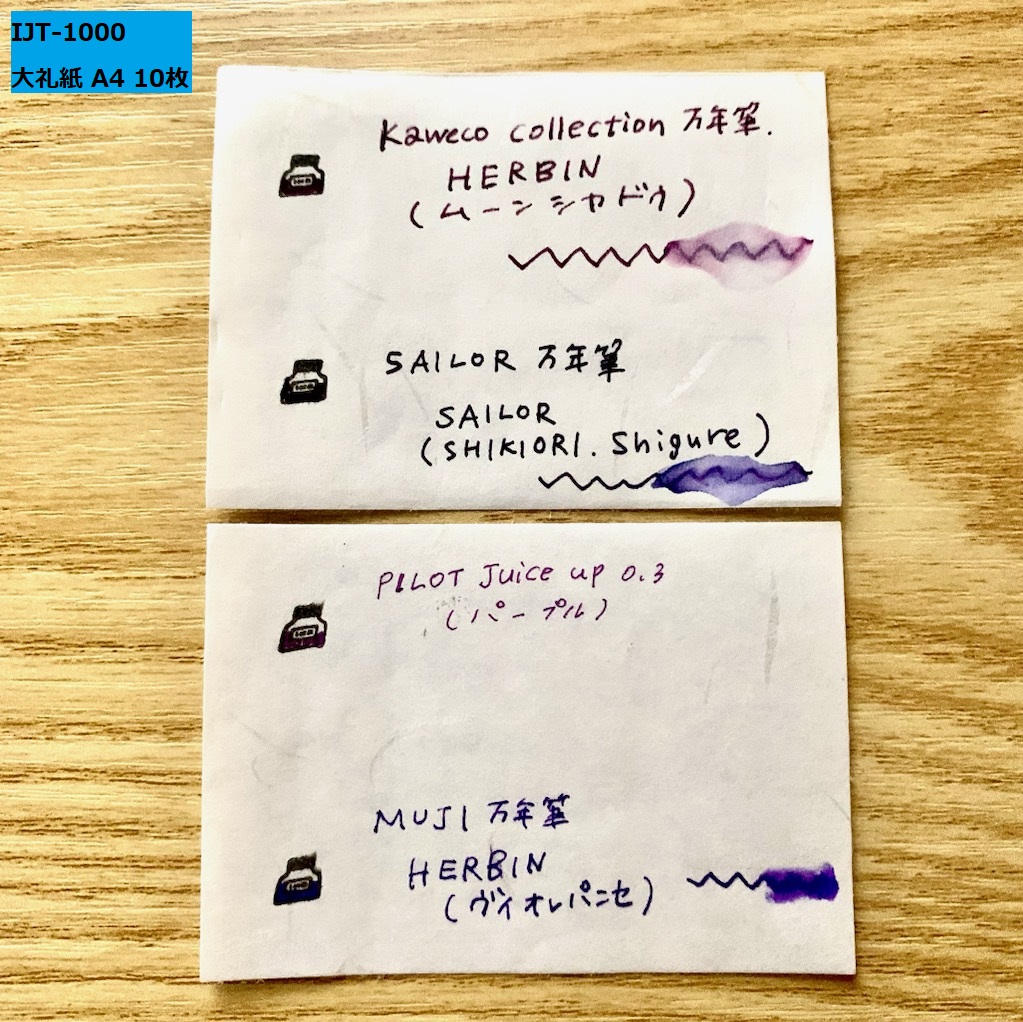 IJT-1000
大礼紙 A4 10枚
Kaweco collection 万年筆.
HERBIN
(ムーンシャドウ)
SAILOR 万年筆
SAILOR
(SHIKIORI. Shigure)
PILOT Juice up 0.3
(パープル)
MUJI 万年筆
HERBIN
(ヴィオレパンセ)